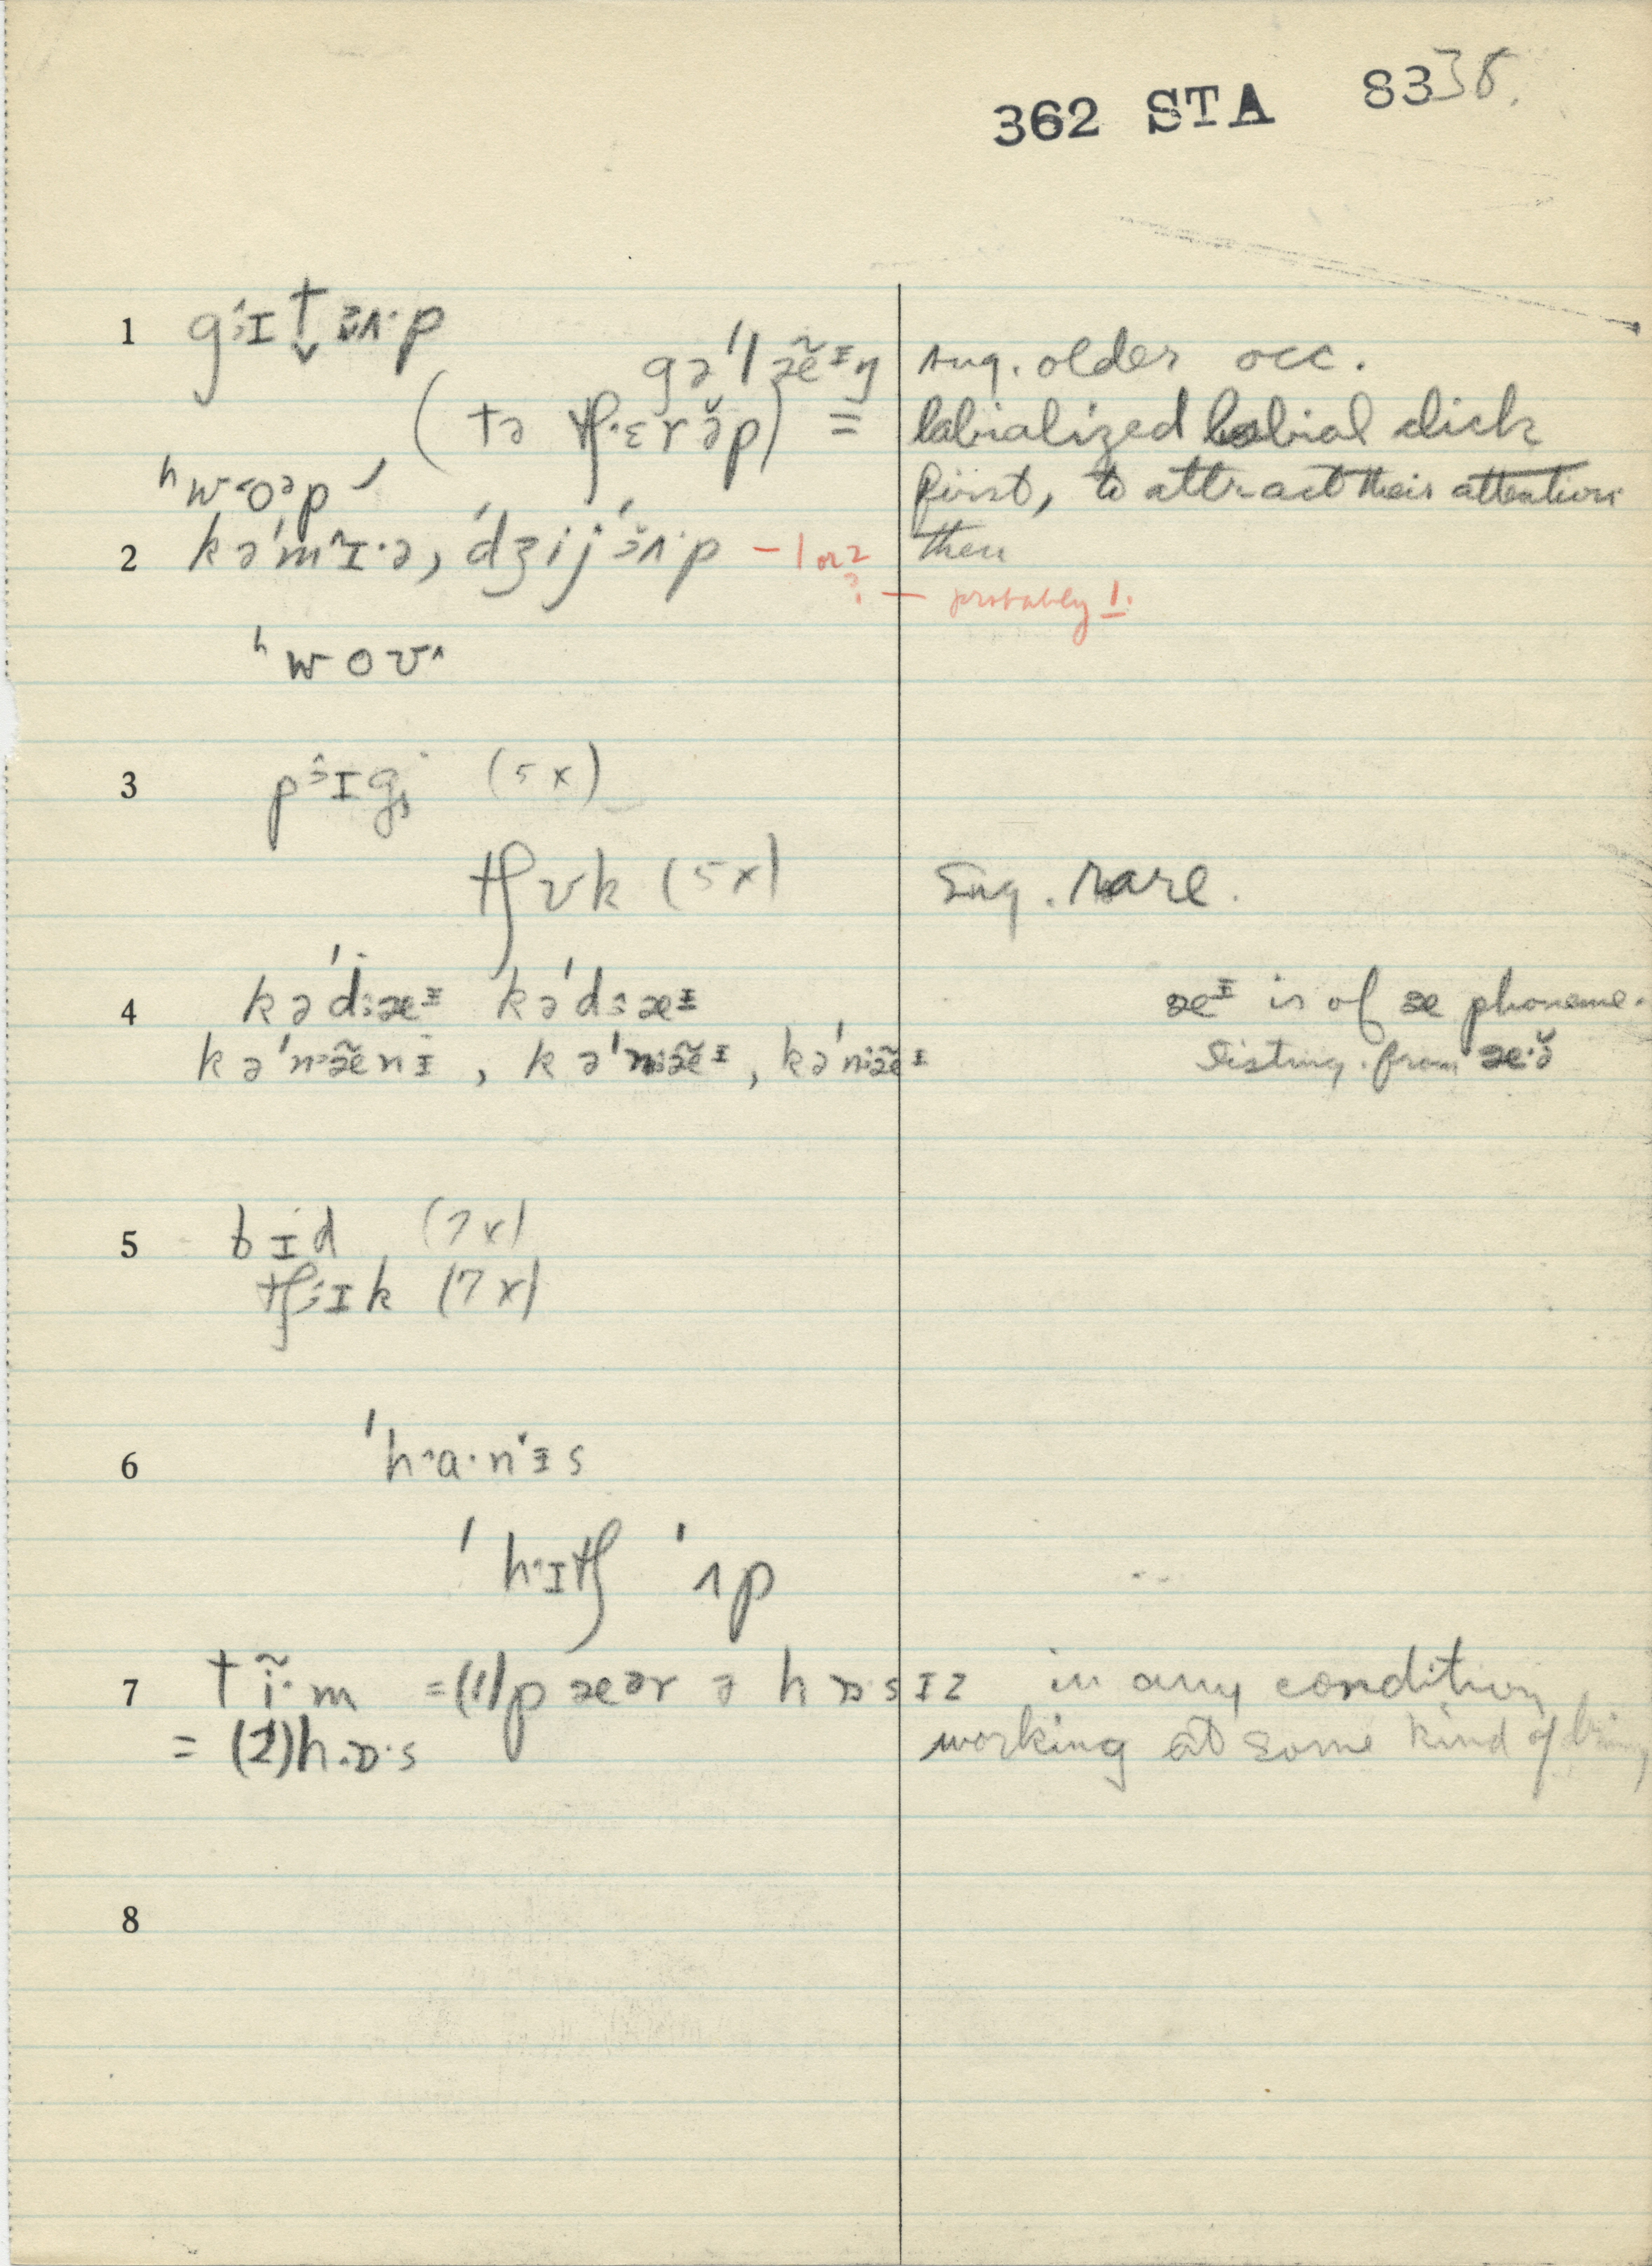 362 STA 8338.
1 gɜɪt̬ɜʌ·p
gə'læ̃ɪŋ sug. older occ.
(tə tʃ·ɛrə̆p) = labialized labial click
ʰwoᵊp first, to attract their attention
2 kə'mɪ·ə, 'dʒij'ɜʌ·p – 1 or 2 then
? — probably 1.
ʰwoʊ^
3 pɜɪg (5x)
tʃʊk (5x) Sug. Rare.
4 kə'dɜæɪ kə'dɜæɪ æɪ is of æ phoneme.
kə'næ̃nɪ, kə'næ̃ɪ, kə'næ̃ɪ Listing. from æ·ə̆
5 bɪd (7x)
tʃɜɪk (7x)
6 'ha·nɪs
'hɪtʃ 'ʌp
7 tĩ·m = (1) pæər ə hɒsɪz in any condition
= (2) h·ɒ·s working at some kind of
8